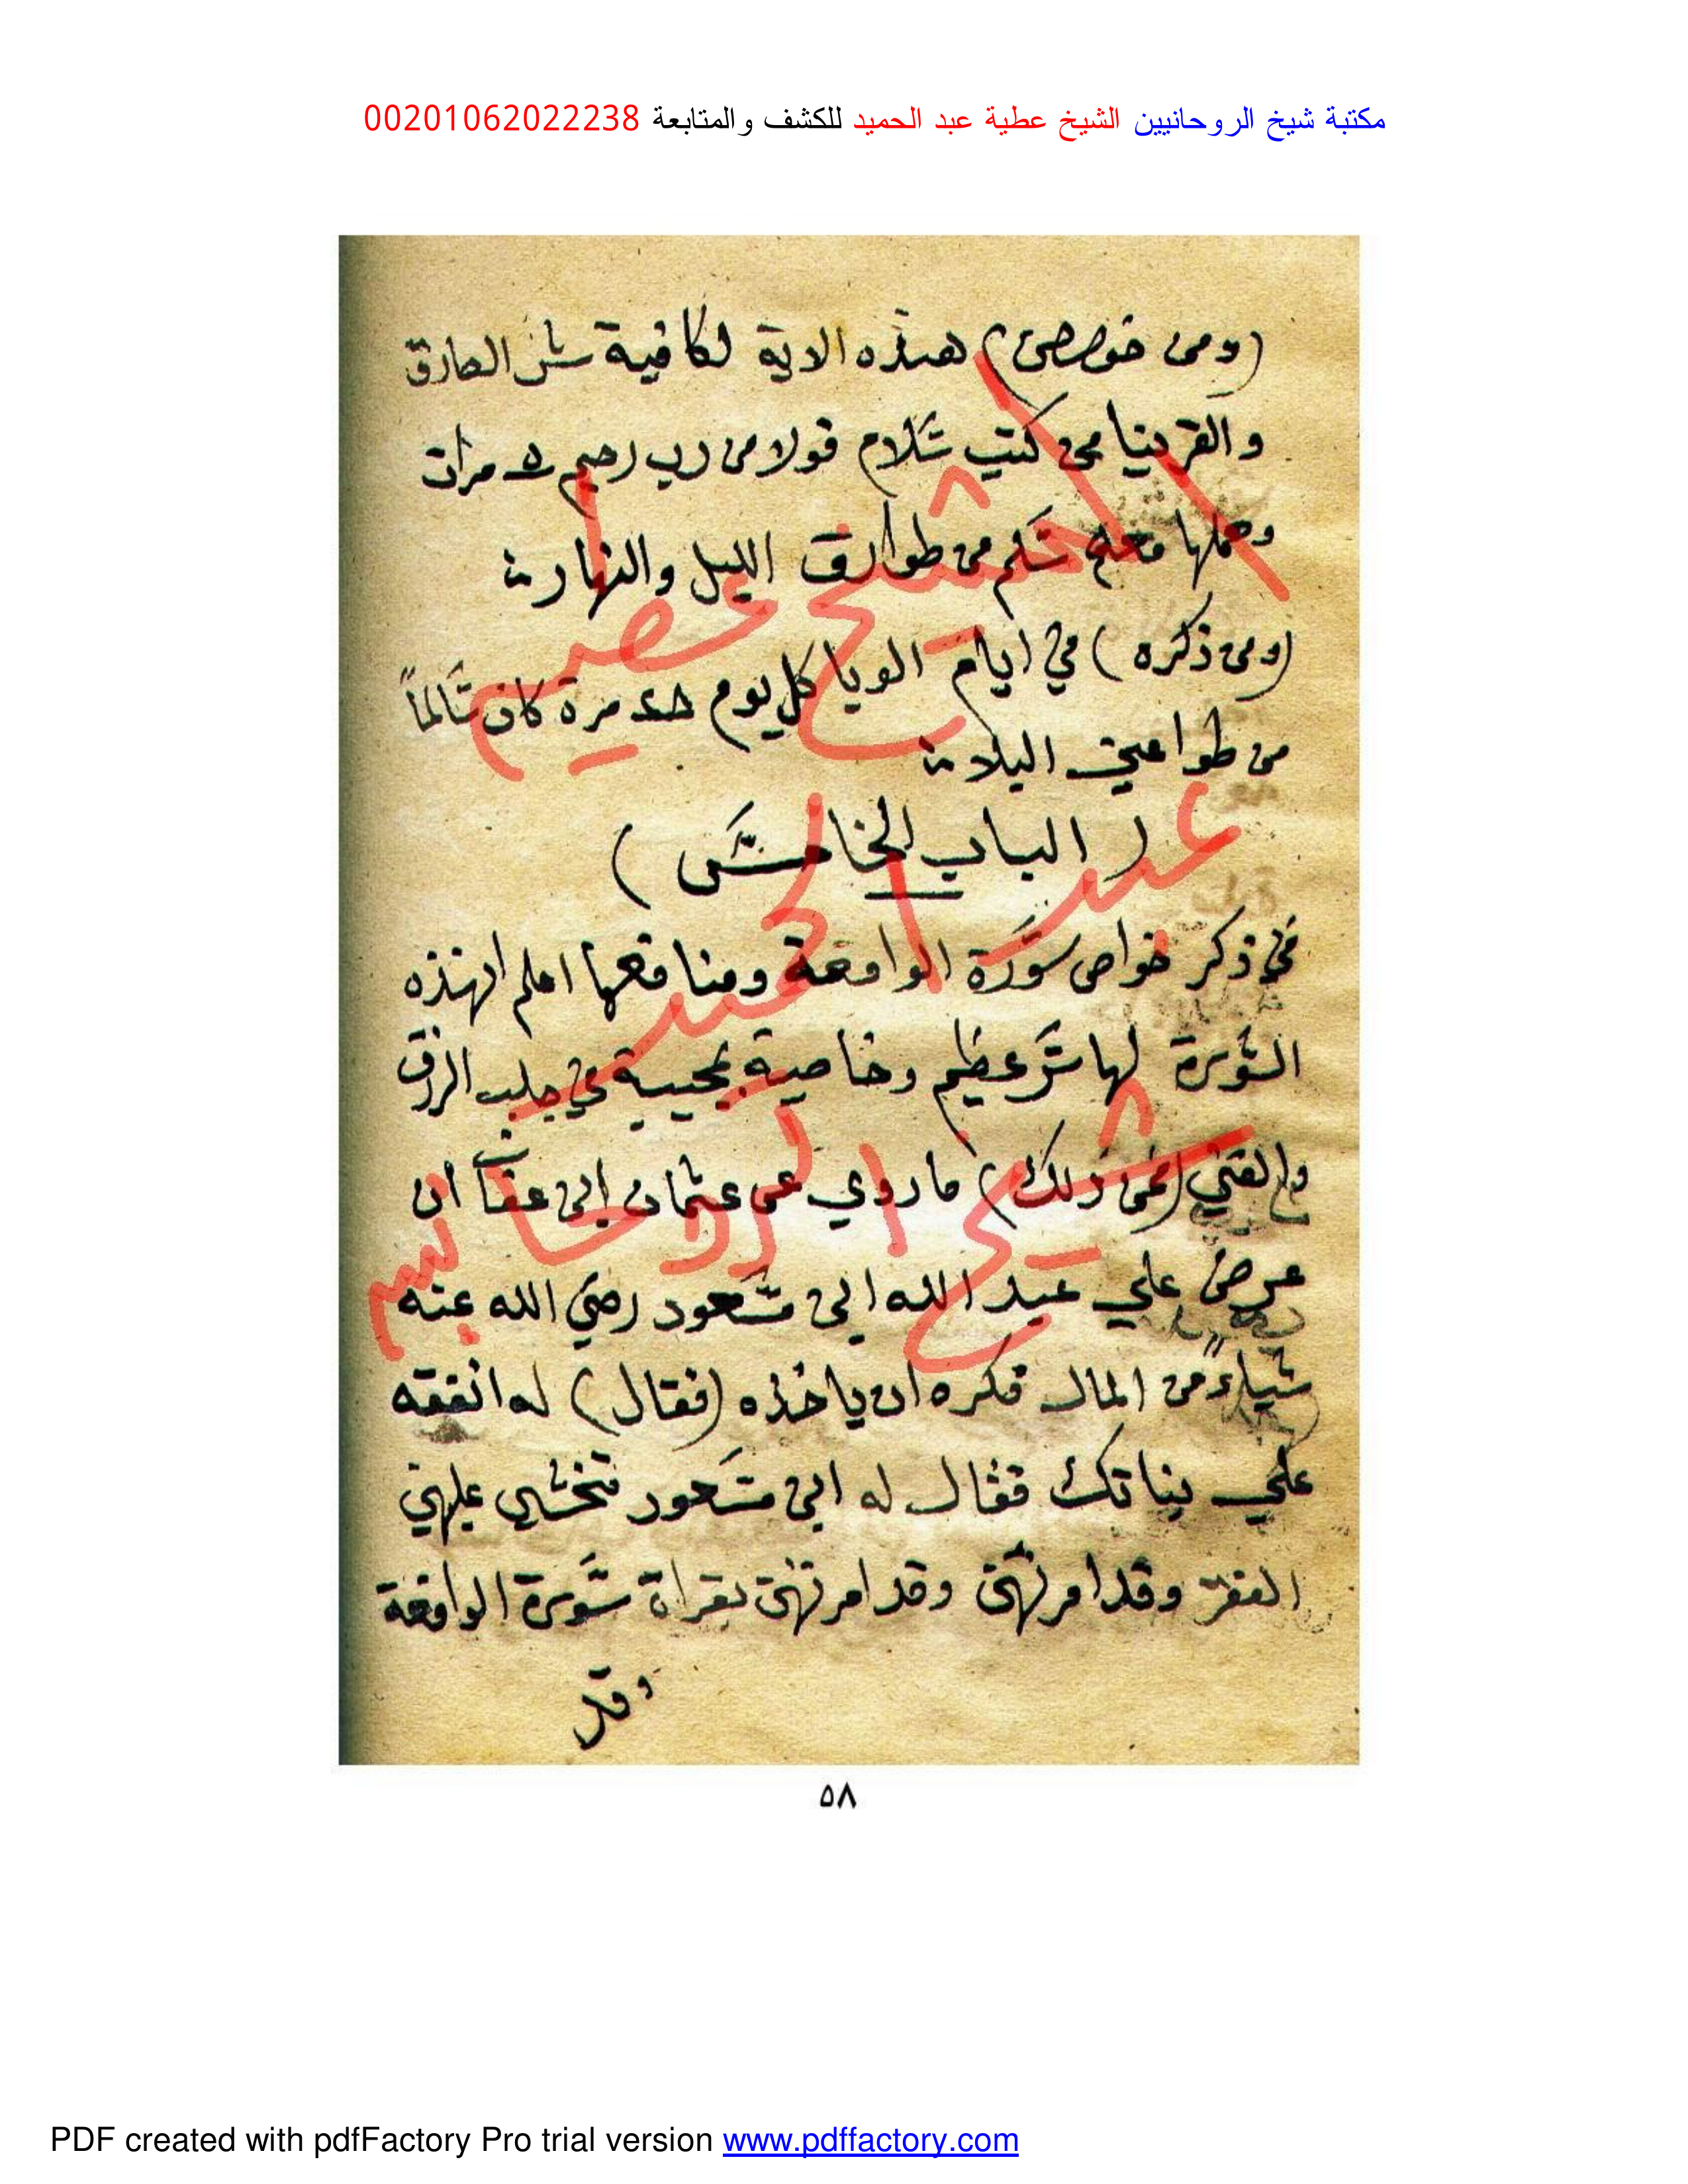 مكتبة شيخ الروحانيين الشيخ عطية عبد الحميد للكشف والمتابعة 00201062022238
(ومن خوصص) هذه الاية لكافية شر
من كتب سلام قولا من رب رحيم ٥ مرات
وحملها معه سلم من طوارق الليل والنهار
(ومن ذكره) في ايام الوبا كل يوم مرة كان سالماً
من طواعين البلاد
( الباب الخامس )
في ذكر خواص سورة الواقعة ومنافعها اعلم ان هذه
السورة لها سر عظيم وخاصية عجيبة في جلب الرزق
والغني (فمن ذلك) ما روي عن عثمان ابن عفان ان
عرض علي عبد الله ابن مسعود رضي الله عنه
شياء من المال فكره ان ياخذه (فقال) له انفقه
علي بناتك فقال له ابن مسعود تخشي عليهن
الفقر وقد امرتهن وقد امرتهن بقراة سورة الواقعة
وقد
الشيخ عطيه
عبد الحميد
شيخ الروحانيين
٥٨
PDF created with pdfFactory Pro trial version www.pdffactory.com